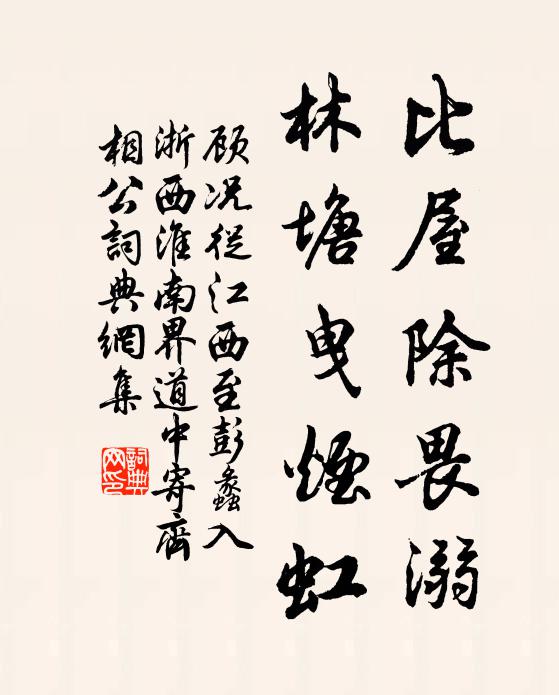 比屋除畏溺
林塘曳煙虹
顾况從江西至彭蠡入
浙西淮南界道中寄齊
相公詞典網集
詞典网印